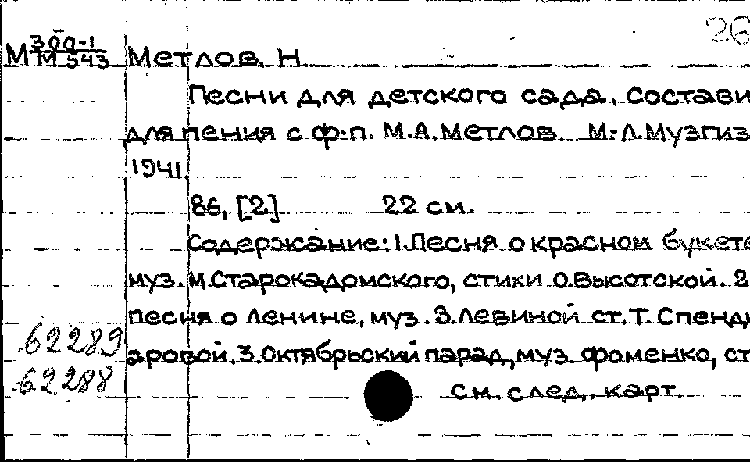 26
М 3 60-1 / М 543 Метлов, Н
Песни для детского сада. Состави
для пения с ф.-п. М.А.Метлов. М.-Л.Музгиз
1941.
86, [2] 22 см.
Содержание: 1.Песня о красном букете
муз. М.Старокадомского, стихи О.Высотской. 2
песня о Ленине, муз. З.Левиной ст. Т. Спенди
аровой. 3.Октябрьский парад, муз. Фоменко, ст
62289
62288
см. след. карт.